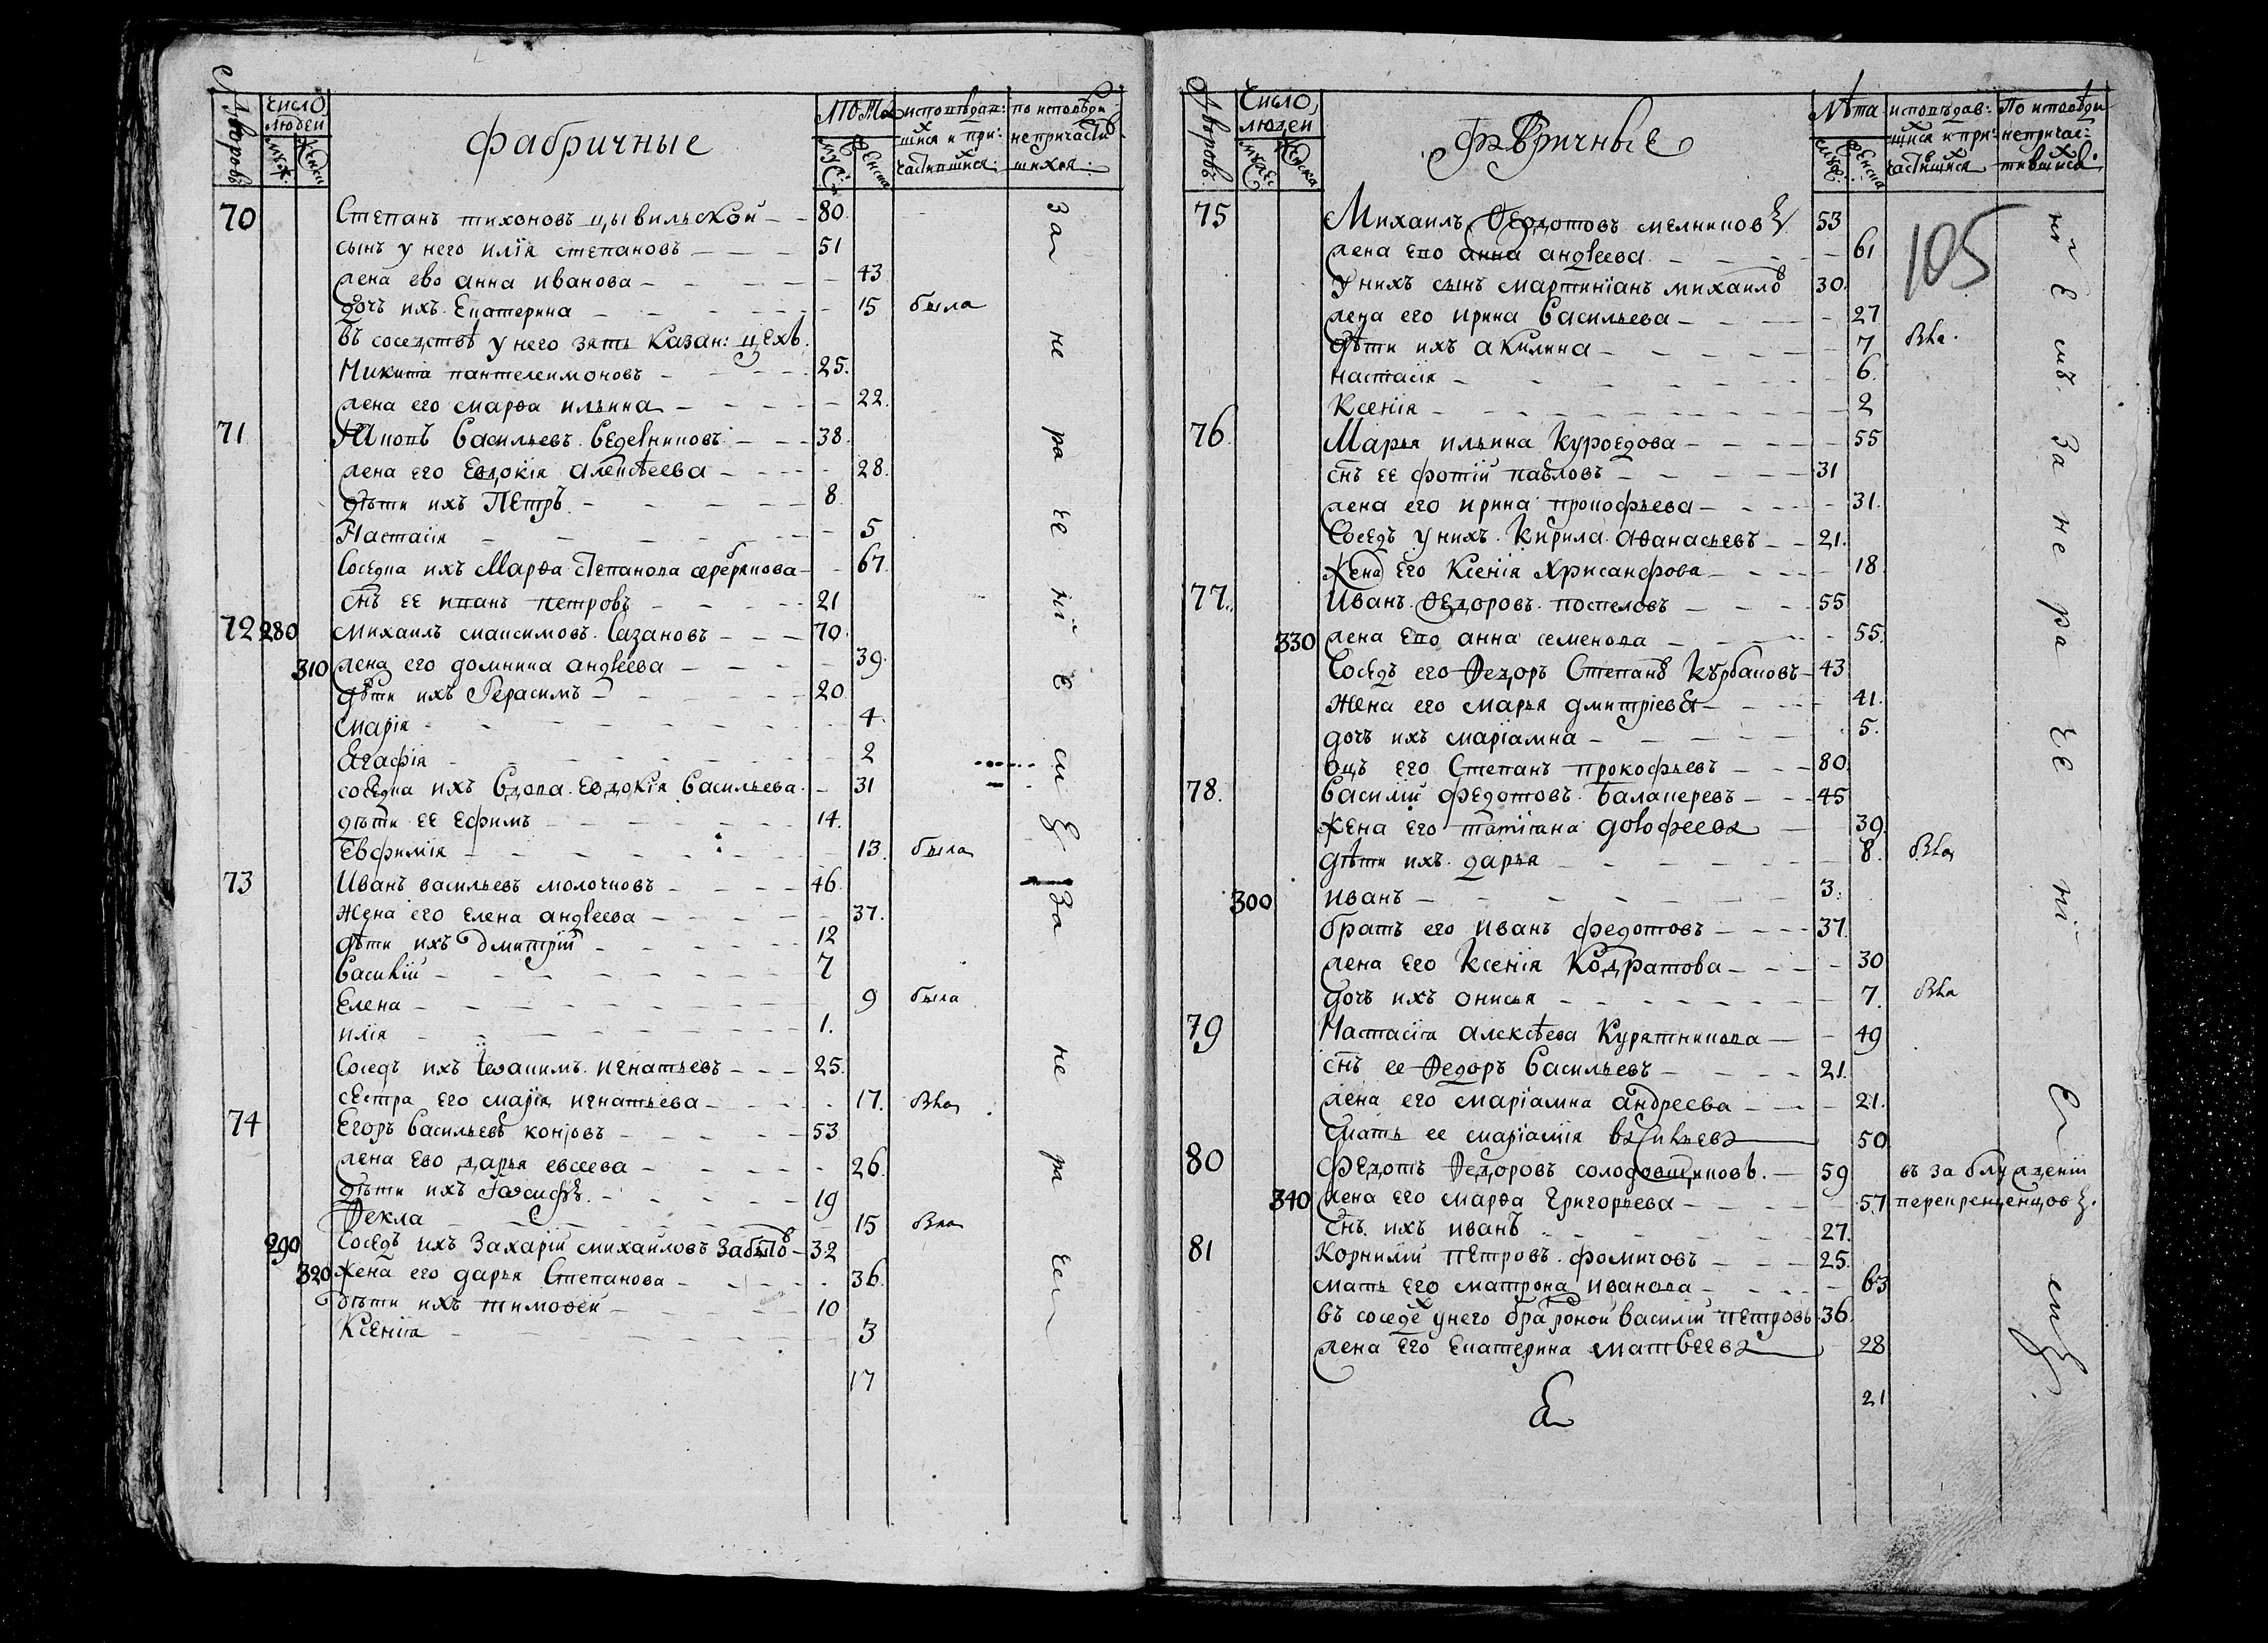 Дворовъ число людей муж. женска фабричные лѣта муж. женска исповѣдав: шихся и при: частившихся: по исповѣди непричастив шихся:
70 Степанъ тихоновъ цывильской 80
сынъ у него илїя степановъ 51
жена ево анна иванова 43
дочь ихъ Екатерина 15 была
въ соседствѣ у него зять Казан: цехѣ
Никита пантелеимоновъ 25.
жена его марѳа ильина 22.
71 Васильевъ Седелниковъ 38.
жена его Евдокїя алексѣева 28.
дѣти ихъ Петръ 8
Настасїя 5
Соседка ихъ Марѳа степанова серебрякова 67
снъ ее иванъ петровъ 21
72 280 михаилъ максимовъ Сазановъ 70
310 жена его домника андреева 39.
дѣти ихъ Герасимъ 20
марїя 4.
Агафїя 2
соседка ихъ вдова Евдокїя Васильева 31
дѣти ее ефимъ 14.
Евфимїя 13. была
73 Иванъ васильевъ молочковъ 46
жена его елена андреева 37.
дѣти ихъ дмитрїй 12
Василїй 7
Елена 9 была
илїя 1.
Соседъ ихъ Iѡакимъ игнатьевъ 25.
сестра его марїя игнатьева 17. Была
74 Егоръ Васильевъ 53
жена ево дарья евсеева 26.
дѣти ихъ Iѡсифъ 19
Ѳекла 15 Была
290 Соседъ ихъ Захарїй михайловъ 32
320 жена его дарья Степанова 36.
дѣти ихъ тимоѳей 10
Ксенїя 3
17
За нераченїемъ
За нерачен
Дворовъ Число людей мужес женска Фабричные лѣта мужес женска исповѣдав: шихся и при: частившихся По исповѣди непричас: тившихся
105
75 Михаилъ Ѳедотовъ мелниковъ 53
жена ево анна андреева 61
У нихъ сынъ мартинїанъ михаиловъ 30.
жена его ирина Васильева 27
дѣти ихъ акилина 7 Была
настасїя 6.
Ксенїя 2
76. Марья ильина Куроедова 55
снъ ее фотїй павловъ 31
жена его ирина прокофьева 31.
Соседъ у нихъ Кирила Аѳанасьевъ 21.
Жена Его Ксенїя Хрисанфова 18
77. Иванъ Ѳедоровъ поспеловъ 55
330 жена ево анна семенова 55.
Соседъ его Ѳедоръ Степановъ Курбановъ 43
жена его марья дмитрїева 41.
дочь ихъ марїамна 5.
оцъ его Степанъ прокофьевъ 80.
78. Василїй Федотовъ Балакеревъ 45
жена его татїана дорофеева 39.
дѣти ихъ дарья 8. Была
300 иванъ 3.
братъ его иванъ федотовъ 37.
жена его Ксенїя Кодратова 30
дочь ихъ онисья 7. Была
79 Настасїя алексѣева Курятникова 49
снъ ее Ѳедоръ Васильевъ 21.
жена его марїамна андреева 21.
мать ее марїамїя васильева 50
80 Федотъ Ѳедоровъ солодовщиковъ. 59 въ заблужденїи
340 жена его марѳа григорьева 57 перекрещенцовъ.
снъ ихъ иванъ 27.
81 Корнилїй петровъ фомичовъ 25.
мать его матрона иванова 63
въ соседе у него брат роной василїй петровъ 36.
жена его екатерина матвеева 28
21
нїемъ За нераченїемъ